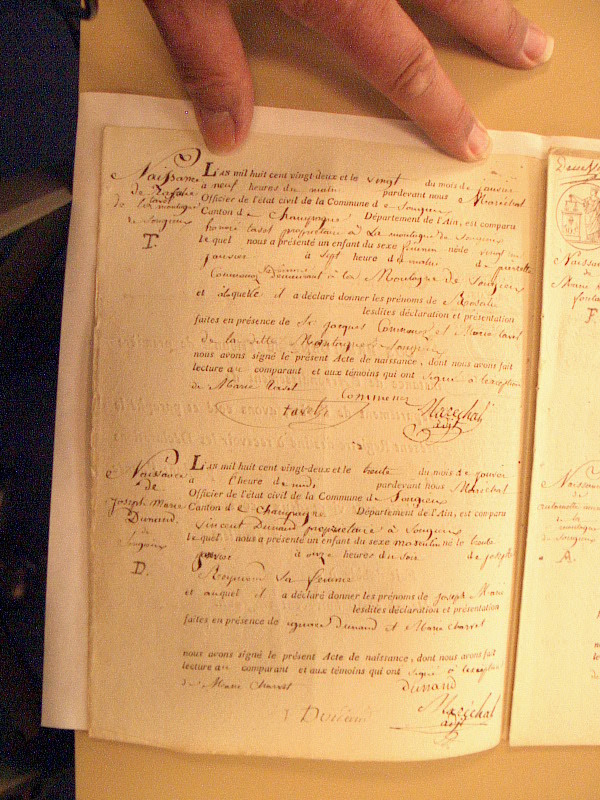 Naissance
de Rosalie
tavel
de la montagne
de Songieu
T.
L'AN mil huit cent vingt-deux et le vingt du mois de janvier
a neuf heures du matin pardevant nous Maréchal
Officier de l'état civil de la Commune de Songieu
Canton de Champagne Département de l'Ain, est comparu
tavel propriétaire à La montagne de Songieu
lequel nous a présenté un enfant du sexe féminin née vingt
janvier à sept heure du matin de
Commenex Demeurant à la Montagne de Songieu
et à laquelle il a déclaré donner les prénoms de Rosalie
lesdites déclaration et présentation
faites en présence de Sr jacques Commenex et Marie tavel
de la ditte Montagne de Songieu
nous avons signé le présent Acte de naissance, dont nous avons fait
lecture au comparant et aux témoins qui ont signé à l'exception
de Marie tavel
Commenex
tavel Maréchal
adjt
Naissance
de
Joseph Marie
Dunand
de
Songieu
D.
L'AN mil huit cent vingt-deux et le trente du mois de janvier
a l'heure de midi, pardevant nous Maréchal
Officier de l'état civil de la Commune de Songieu
Canton de Champagne Département de l'Ain, est comparu
Vincent Dunand propriétaire à Songieu
lequel nous a présenté un enfant du sexe masculin né le trente
janvier à onze heures du soir de josephte
Reymond sa femme
et auquel il a déclaré donner les prénoms de joseph Marie
lesdites déclaration et présentation
faites en présence de ignace Dunand et Marie Charvet
nous avons signé le présent Acte de naissance, dont nous avons fait
lecture au comparant et aux témoins qui ont signé à l'exception
de Marie Charvet
Dunand
Maréchal
adjt
Naissance
F.
Naissance
de la
montagne
de Songieu
A.